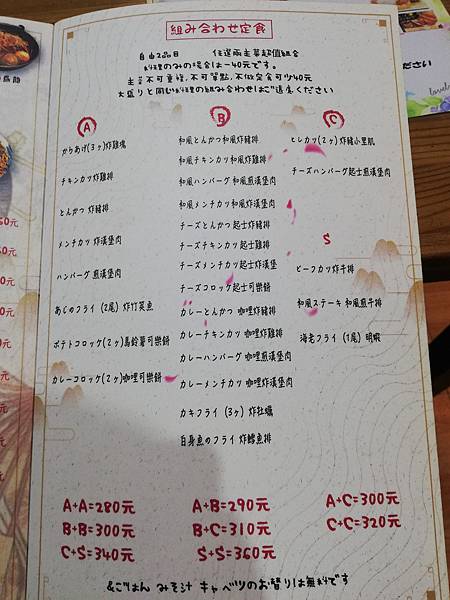 組み合わせ定食
自由2品目 任選兩主菜超值組合
料理のみの場合は-40元です。
主菜不可重複,不可單點,不做定食可少40元
大盛りと同じ料理の組み合わせはご遠慮ください
A
からあげ(3ヶ)炸雞塊
チキンカツ 炸雞排
とんかつ 炸豬排
メンチカツ 炸漢堡肉
ハンバーグ 煎漢堡肉
あじのフライ (2尾) 炸竹莢魚
ポテトコロッケ(2ヶ)馬鈴薯可樂餅
カレーコロッケ(2ヶ)咖哩可樂餅
B
和風とんかつ和風炸豬排
和風チキンカツ 和風炸雞排
和風ハンバーグ 和風煎漢堡肉
和風メンチカツ 和風炸漢堡肉
チーズとんかつ 起士炸豬排
チーズチキンカツ 起士雞排
チーズメンチカツ 起士炸漢堡
チーズコロッケ 起士可樂餅
カレーとんかつ 咖哩炸豬排
カレーチキンカツ 咖哩雞排
カレーハンバーグ 咖哩煎漢堡肉
カレーメンチカツ 咖哩炸漢堡肉
カキフライ (3ヶ) 炸牡蠣
白身魚のフライ 炸鱈魚排
C
ヒレカツ(2ヶ)炸豬小里肌
チーズハンバーグ起士煎漢堡肉
S
ビーフカツ 炸牛排
和風ステーキ 和風煎牛排
海老フライ (1尾) 明蝦
A+A=280元
B+B=300元
C+S=340元
A+B=290元
B+C=310元
S+S=360元
A+C=300元
C+C=320元
&ごはん みそ汁 キャベツのお替りは無料です
ください